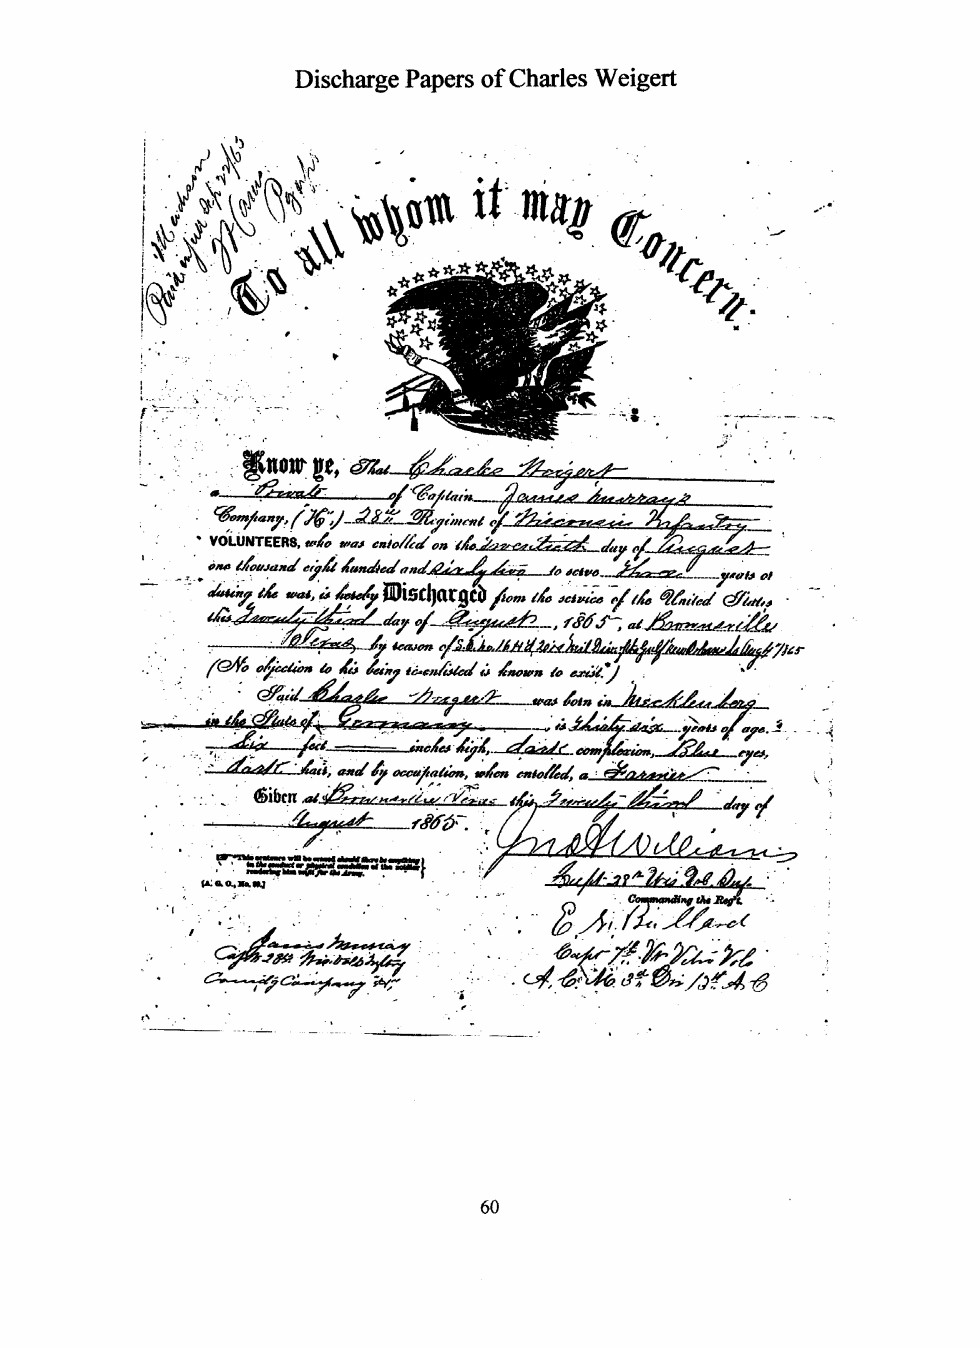 Discharge Papers of Charles Weigert
To all whom it may Concern:
Know ye, That Charles Weigert
a Private of Captain James Murray's
Company, (K,) 28th Regiment of Wisconsin Infantry
VOLUNTEERS, who was enrolled on the twentieth day of August
one thousand eight hundred and sixty two to serve three years or
during the war, is hereby Discharged from the service of the United States
this Twenty third day of August, 1865, at Brownsville
Texas by reason of S.O. No. Mil Div of the Gulf New Orleans La Aug 7/1865
(No objection to his being re-enlisted is known to exist.*)
Said Charles Weigert was born in Mecklenberg
in the State of Germany, is thirty six years of age,
Six feet inches high, dark complexion, Blue eyes,
dark hair, and by occupation, when enrolled, a Farmer
Given at Brownsville Texas this Twenty third day of
August 1865.
Jno A Williams
*This sentence will be erased should there be anything
in the conduct or physical condition of the soldier
rendering him unfit for the Army.
[A. G. O., No. 99.]
Capt 28th Wis Vol. Inf.
Commanding the Reg't.
E. N. Bullard
James Murray
Capt 28th Wis Vols Infty
Capt 7th Vt Vetn Vols
Comdg Company K
A. C. M. 3d Div 13th A C
60